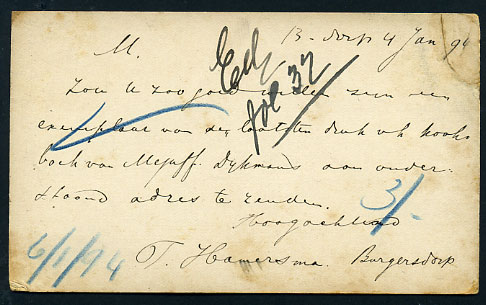 B-dorp 4 Jan 94
M.
fol 32
Zou U zoo goed willen zijn een
exemplaar van den laatsten druk v/h kook
boek van Mejuff. Dykmans aan onder-
staand adres te zenden.
Hoogachtend
3/-
T. Hamersma. Burgersdorp
6/1/94